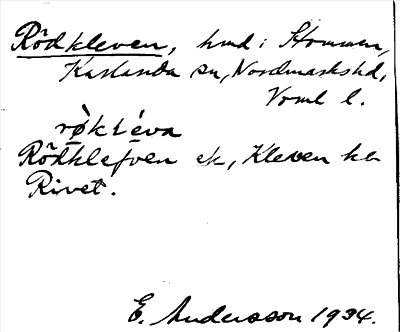 Rödkleven, hmd i Stommen,
Karlanda sn, Nordmarks hd,
Vrml l.
røkléva
Rödklefven ek, Kleven ka
Rivet.
E. Andersson 1934.